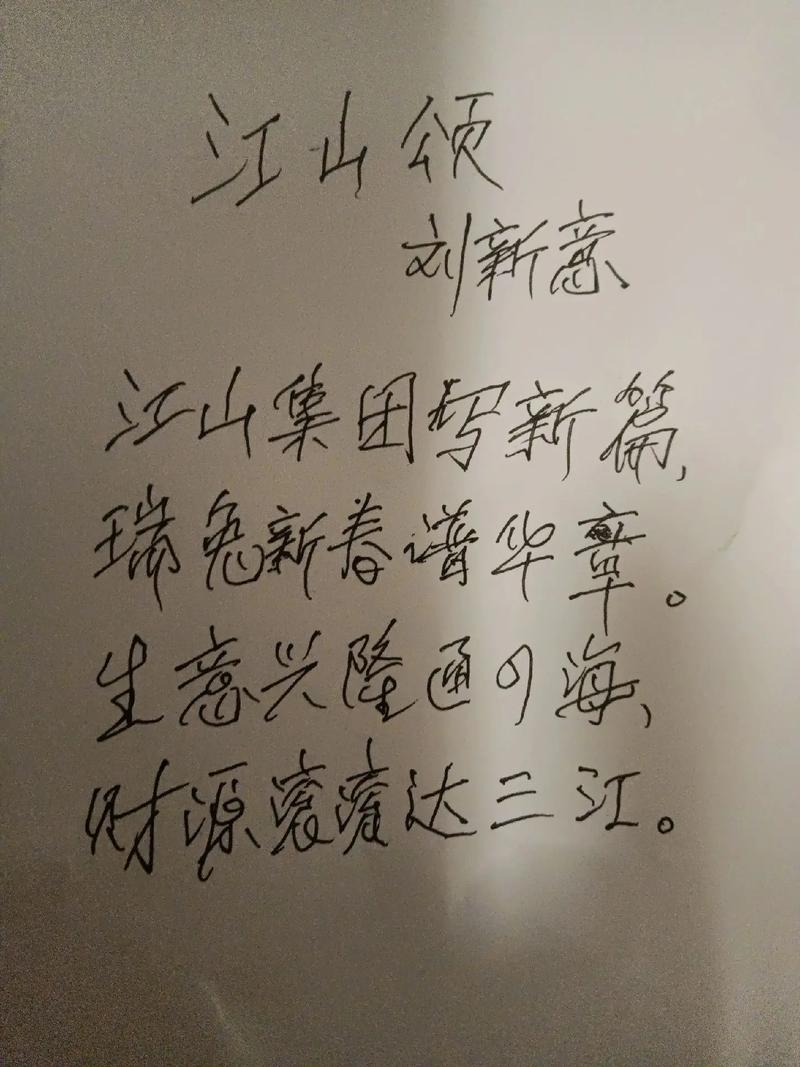 江山颂
刘新意
江山集团写新篇,
瑞兔新春谱华章。
生意兴隆通四海,
财源滚滚达三江。